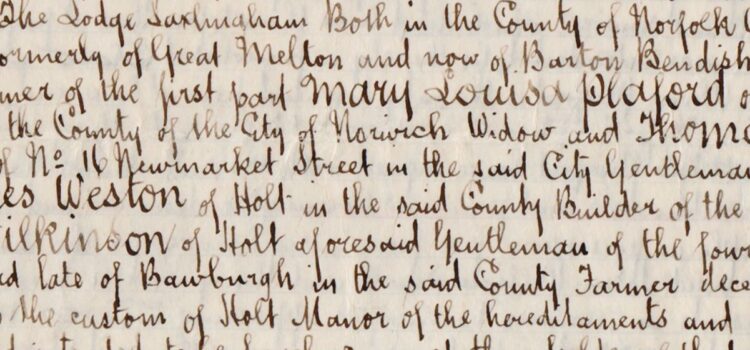 The Lodge Saxlingham Both in the County of Norfolk
formerly of Great Melton and now of Barton Bendish
of the first part Mary Louisa Playford
the County of the City of Norwich Widow and Thom
of No 16 Newmarket Street in the said City Gentleman
es Weston of Holt in the said County Builder of the
ilkinson of Holt aforesaid Gentleman of the four
d late of Bawburgh in the said County Farmer dece
the custom of Holt Manor of the hereditaments and